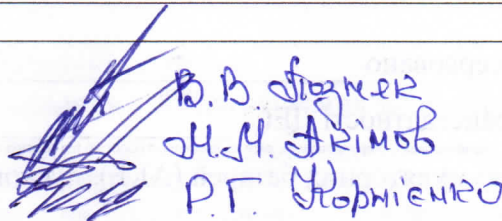 В.В. Позняк
М.М. Акімов
Р.Г. Корнієнко